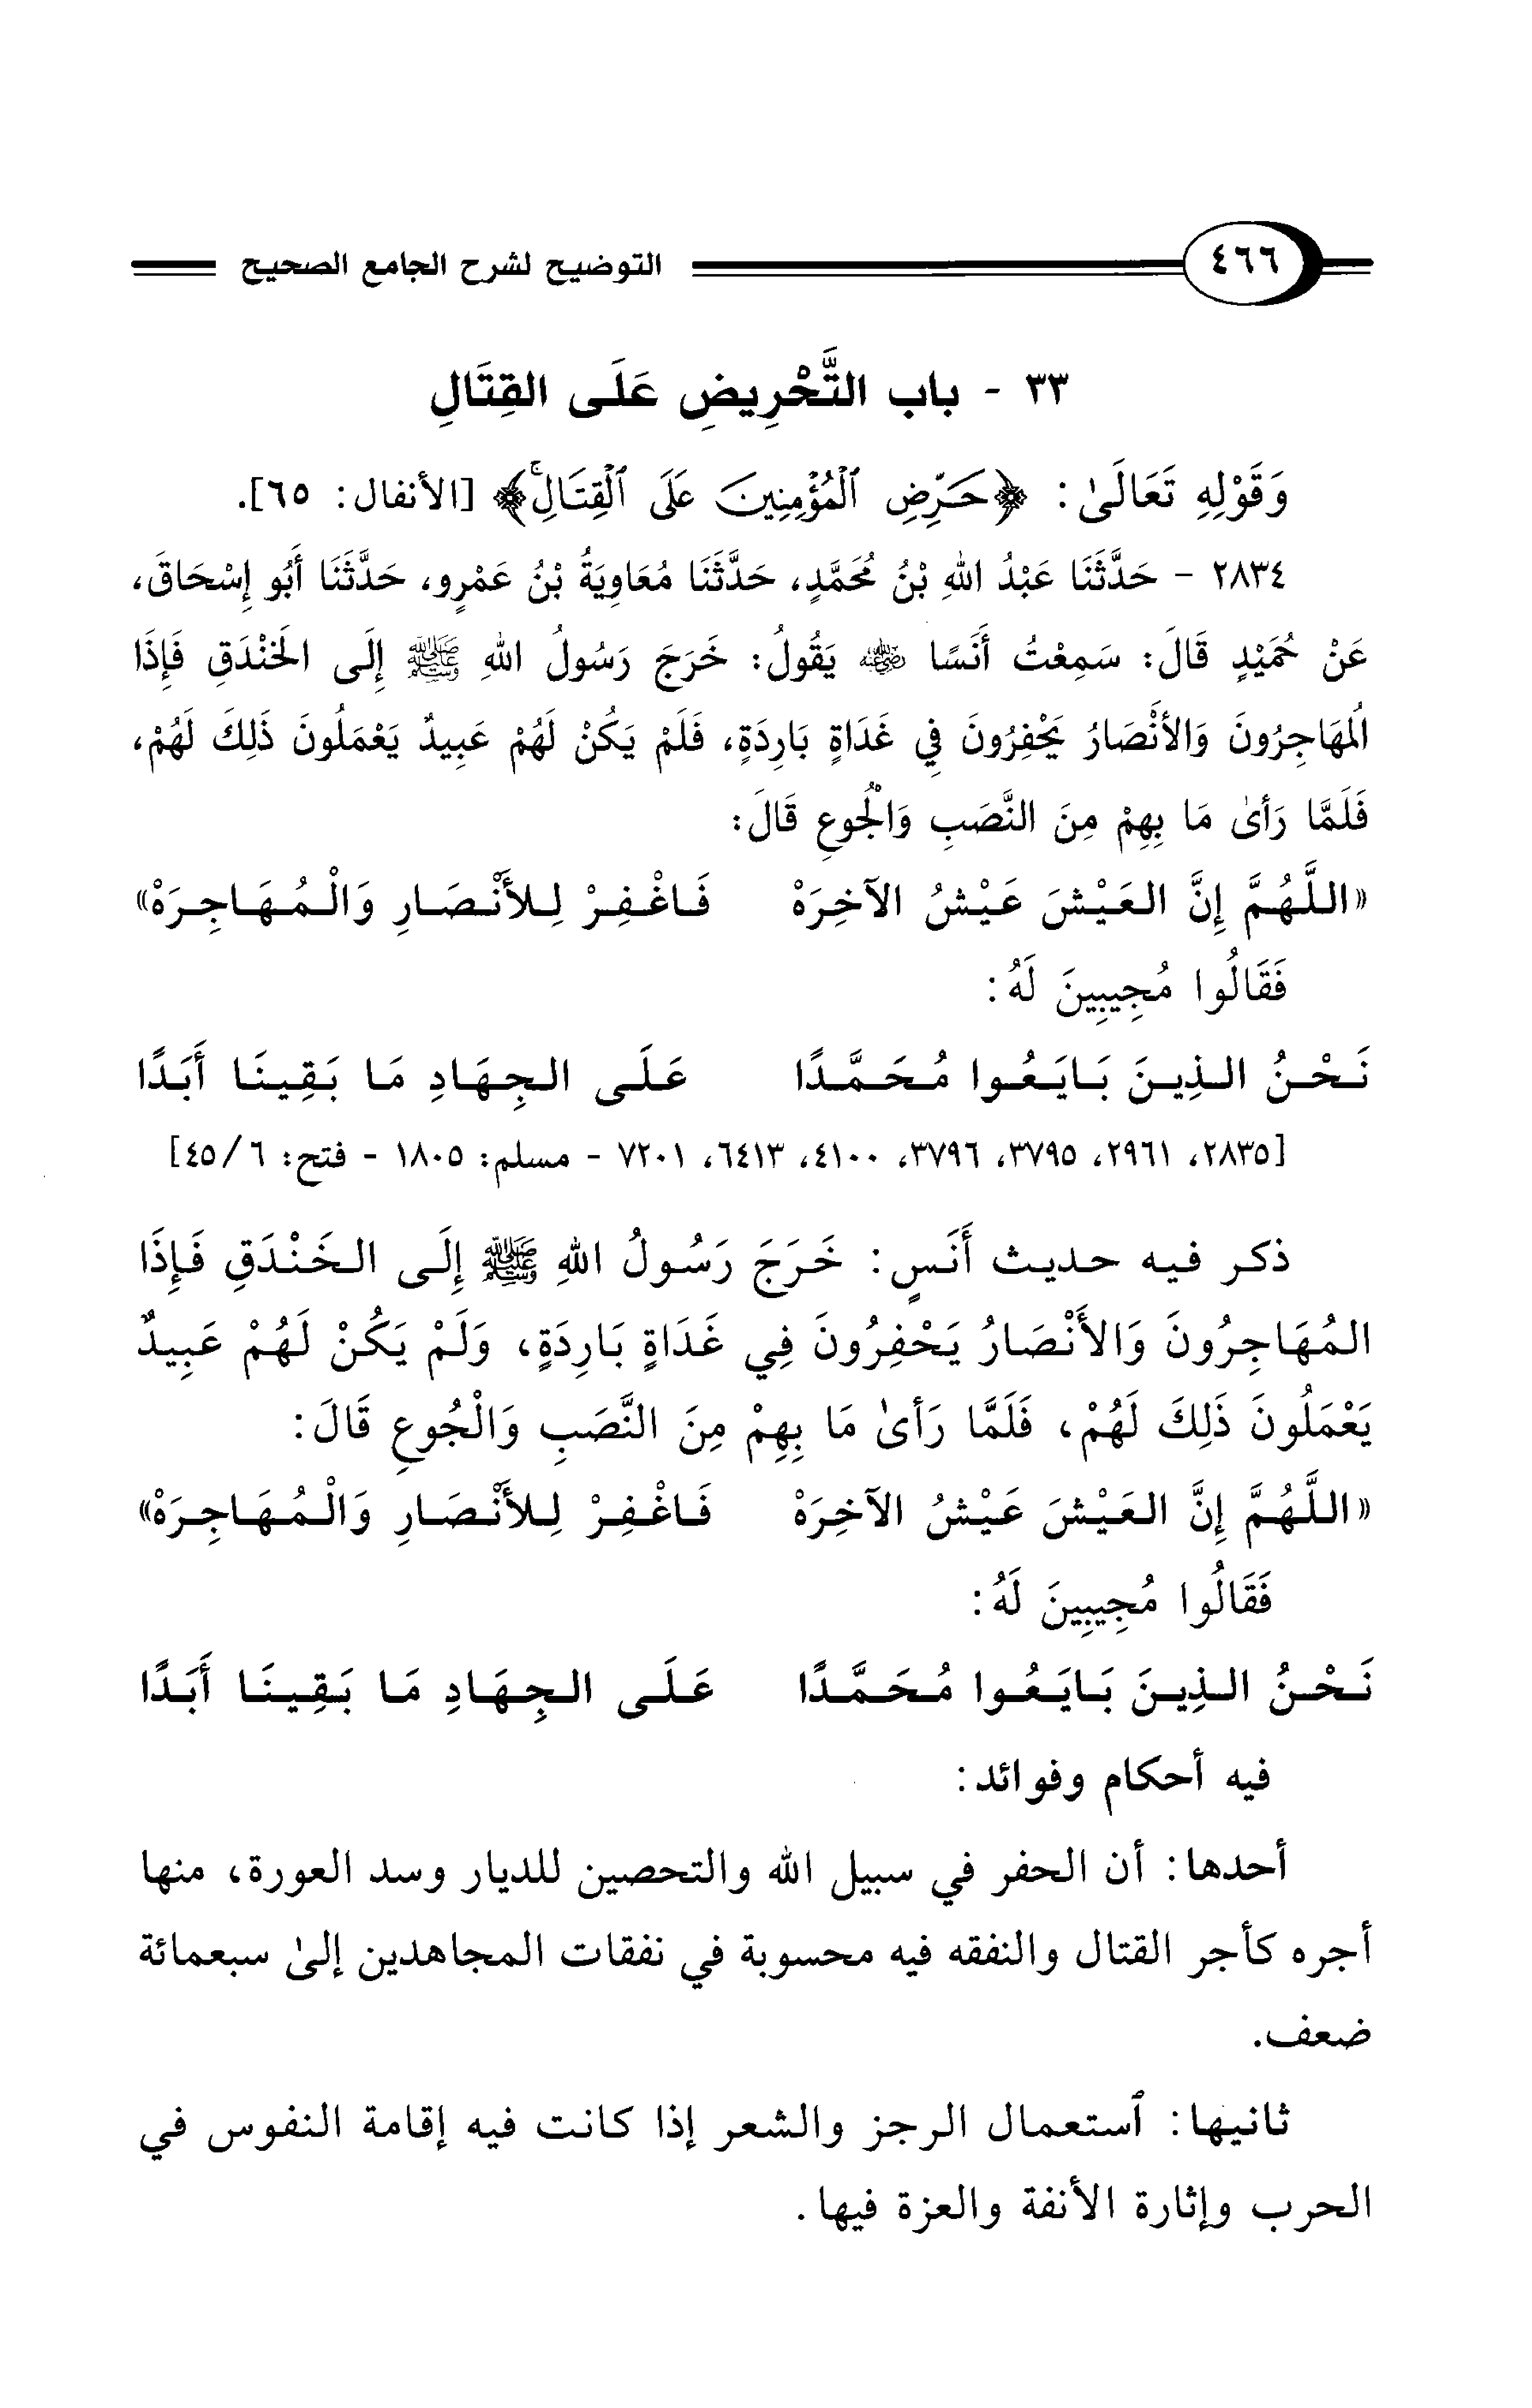 ٤٦٦ التوضيح لشرح الجامع الصحيح
٣٣ - باب التَّحْرِيضِ عَلَى القِتَالِ
وَقَوْلِهِ تَعَالَىٰ: ﴿حَرِّضِ ٱلْمُؤْمِنِينَ عَلَى ٱلْقِتَالِۚ﴾ [الأنفال: ٦٥].
٢٨٣٤ - حَدَّثَنَا عَبْدُ اللهِ بْنُ مُحَمَّدٍ، حَدَّثَنَا مُعَاوِيَةُ بْنُ عَمْرٍو، حَدَّثَنَا أَبُو إِسْحَاقَ،
عَنْ حُمَيْدٍ قَالَ: سَمِعْتُ أَنَسًا رضي الله عنه يَقُولُ: خَرَجَ رَسُولُ اللهِ ﷺ إِلَى الخَنْدَقِ فَإِذَا
المُهَاجِرُونَ وَالأَنْصَارُ يَحْفِرُونَ فِي غَدَاةٍ بَارِدَةٍ، فَلَمْ يَكُنْ لَهُمْ عَبِيدٌ يَعْمَلُونَ ذَلِكَ لَهُمْ،
فَلَمَّا رَأىٰ مَا بِهِمْ مِنَ النَّصَبِ وَالْجُوعِ قَالَ:
«اللَّهُمَّ إِنَّ العَيْشَ عَيْشُ الآخِرَهْ فَاغْفِرْ لِلأَنْصَارِ وَالْمُهَاجِرَهْ»
فَقَالُوا مُجِيبِينَ لَهُ:
نَحْنُ الذِينَ بَايَعُوا مُحَمَّدًا عَلَى الجِهَادِ مَا بَقِينَا أَبَدًا
[٢٨٣٥، ٢٩٦١، ٣٧٩٥، ٣٧٩٦، ٤١٠٠، ٦٤١٣، ٧٢٠١ - مسلم: ١٨٠٥ - فتح: ٦/ ٤٥]
ذكر فيه حديث أَنَسٍ: خَرَجَ رَسُولُ اللهِ ﷺ إِلَى الخَنْدَقِ فَإِذَا
المُهَاجِرُونَ وَالأَنْصَارُ يَحْفِرُونَ فِي غَدَاةٍ بَارِدَةٍ، وَلَمْ يَكُنْ لَهُمْ عَبِيدٌ
يَعْمَلُونَ ذَلِكَ لَهُمْ، فَلَمَّا رَأىٰ مَا بِهِمْ مِنَ النَّصَبِ وَالْجُوعِ قَالَ:
«اللَّهُمَّ إِنَّ العَيْشَ عَيْشُ الآخِرَهْ فَاغْفِرْ لِلأَنْصَارِ وَالْمُهَاجِرَهْ»
فَقَالُوا مُجِيبِينَ لَهُ:
نَحْنُ الذِينَ بَايَعُوا مُحَمَّدًا عَلَى الجِهَادِ مَا بَقِينَا أَبَدًا
فيه أحكام وفوائد:
أحدها: أن الحفر في سبيل الله والتحصين للديار وسد العورة، منها
أجره كأجر القتال والنفقه فيه محسوبة في نفقات المجاهدين إلىٰ سبعمائة
ضعف.
ثانيها: ٱستعمال الرجز والشعر إذا كانت فيه إقامة النفوس في
الحرب وإثارة الأنفة والعزة فيها.